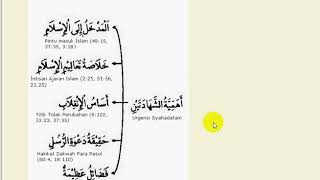 الْمَدْخَلُ إِلَى الْإِسْلَامِ
Pintu masuk Islam (49:15,
37:35, 3:18)
خُلَاصَةُ تَعَالِيْمِ الْإِسْلَامِ
Intisari Ajaran Islam (2:21, 51:56,
21:25)
أَسَاسُ الْإِنْقِلَابِ
Titik Tolak Perubahan (6:122,
33:23, 37:35)
حَقِيْقَةُ دَعْوَةِ الرُّسُلِ
Hakikat Dakwah Para Rasul
(60:4, 18:110)
فَضَائِلُ عَظِيْمَةٌ
أَهَمِّيَّةُ الشَّهَادَتَيْنِ
Urgensi Syahadatain